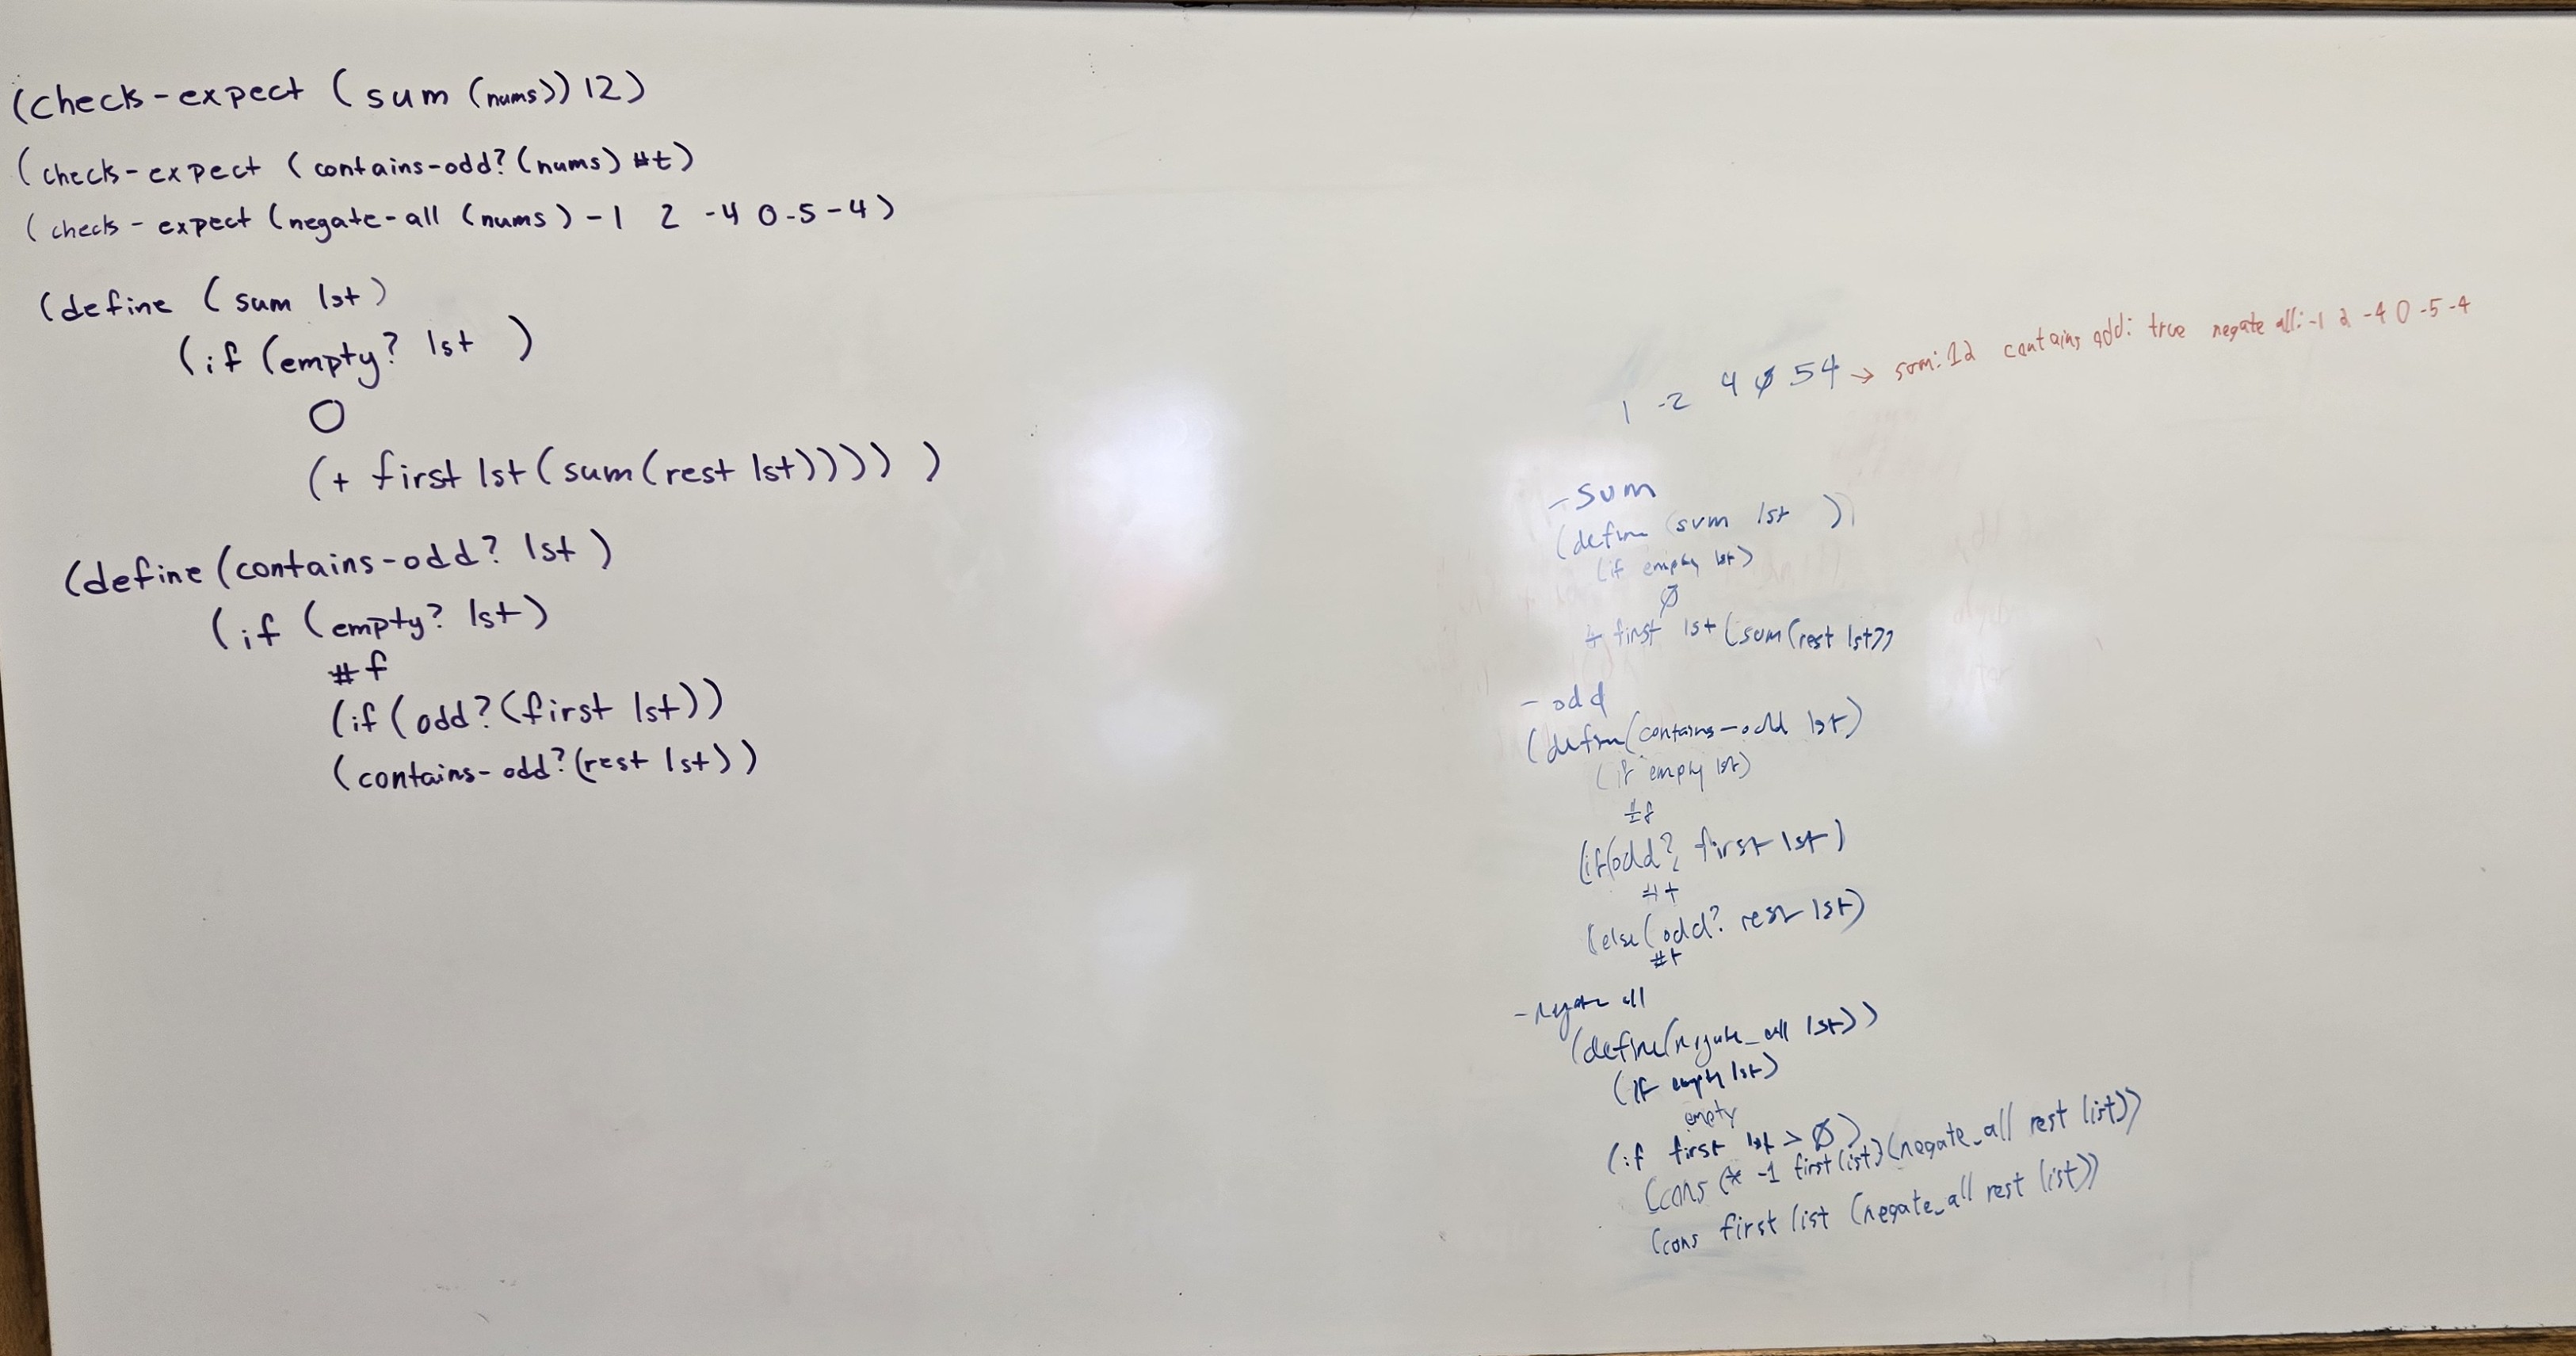 (checks-expect (sum (nums)) 12)
(checks-expect (contains-odd? (nums) #t)
(checks-expect (negate-all (nums) -1 2 -4 0 -5 -4)
(define (sum lst)
(if (empty? lst )
0
(+ first lst (sum (rest lst)))) )
(define (contains-odd? lst)
(if (empty? lst)
#f
(if (odd? (first lst))
(contains-odd? (rest lst))
1 -2 4 Ø 5 4 → sum: 12 contains odd: true negate all: -1 2 -4 0 -5 -4
- sum
(define (sum lst ))
(if empty lst)
Ø
+ first lst (sum (rest lst))
- odd
(define (contains-odd lst)
(if empty lst)
#f
(if (odd? first lst)
#t
(else (odd? rest lst)
#t
- negate all
(define (negate_all lst))
(if empty lst)
empty
(if first lst > Ø)
(cons (* -1 first list) (negate_all rest list))
(cons first list (negate_all rest list))